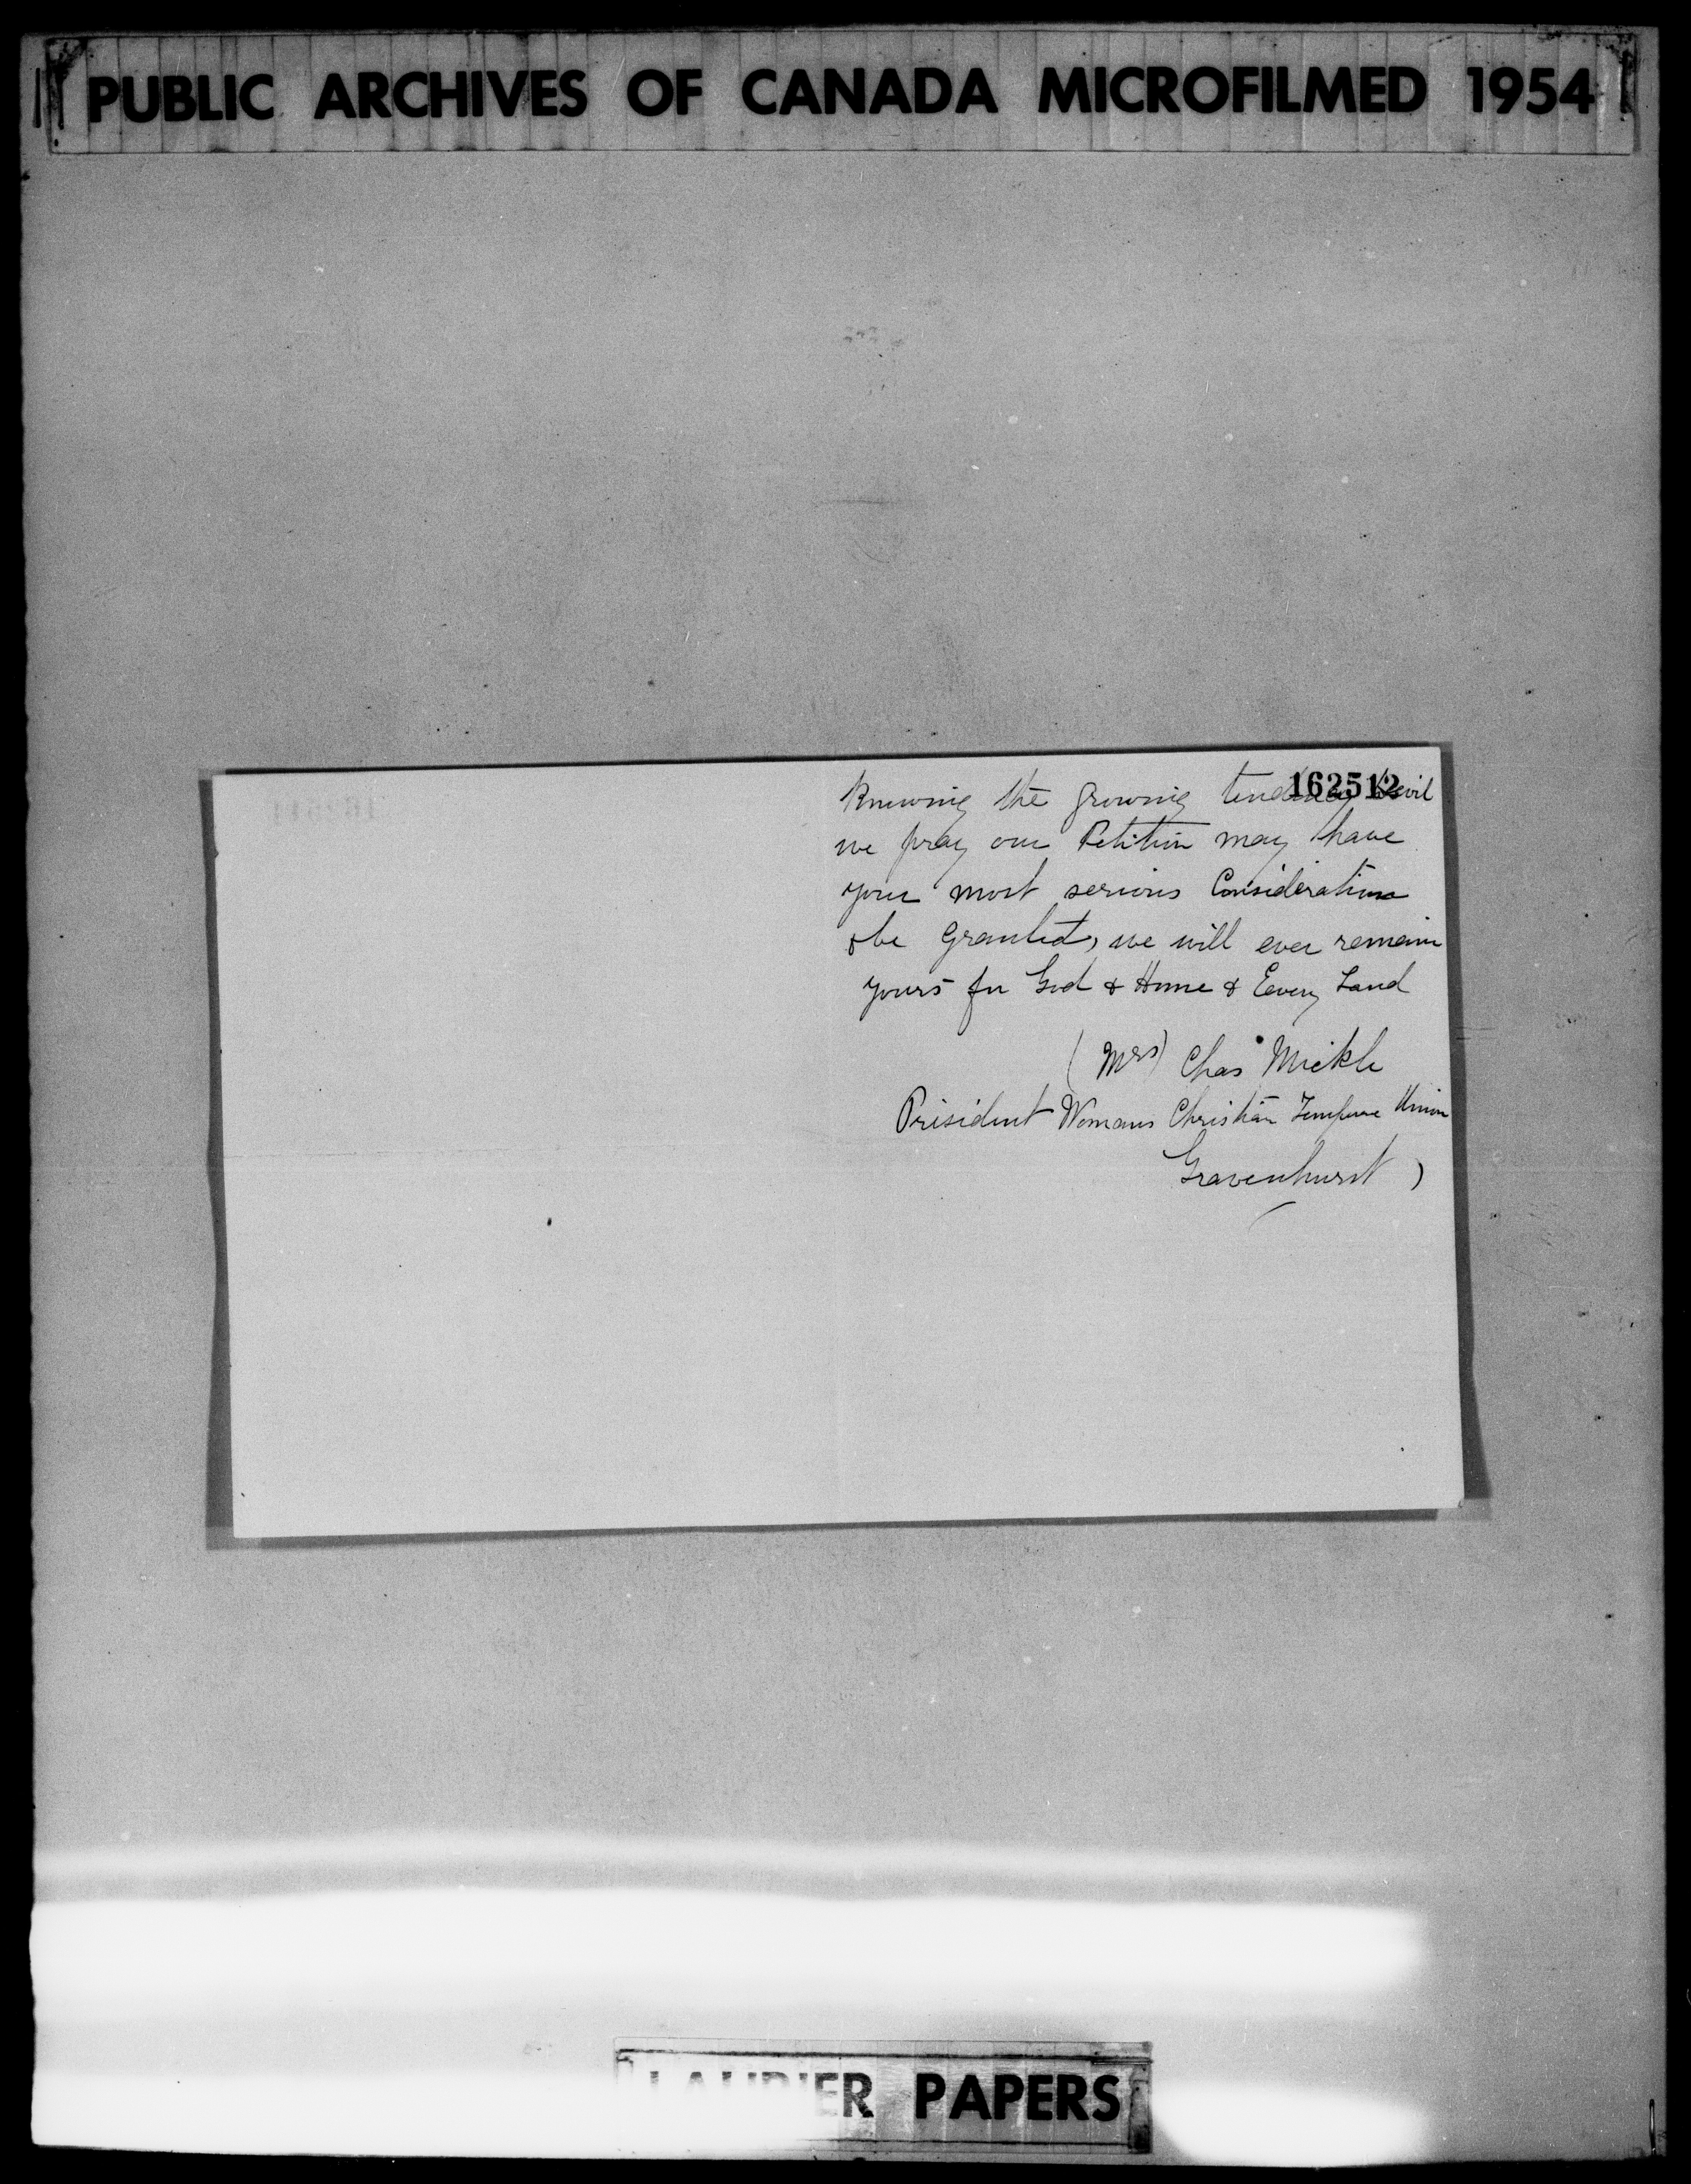 PUBLIC ARCHIVES OF CANADA MICROFILMED 1954
162512
Knowing the growing tendency to evil
we pray our Petition may have
your most serious Consideration
& be Granted, we will ever remain
yours for God & Home & Every Land
(Mrs) Chas Mickle
President Womans Christian Temprce Union
Gravenhurst)
LAURIER PAPERS